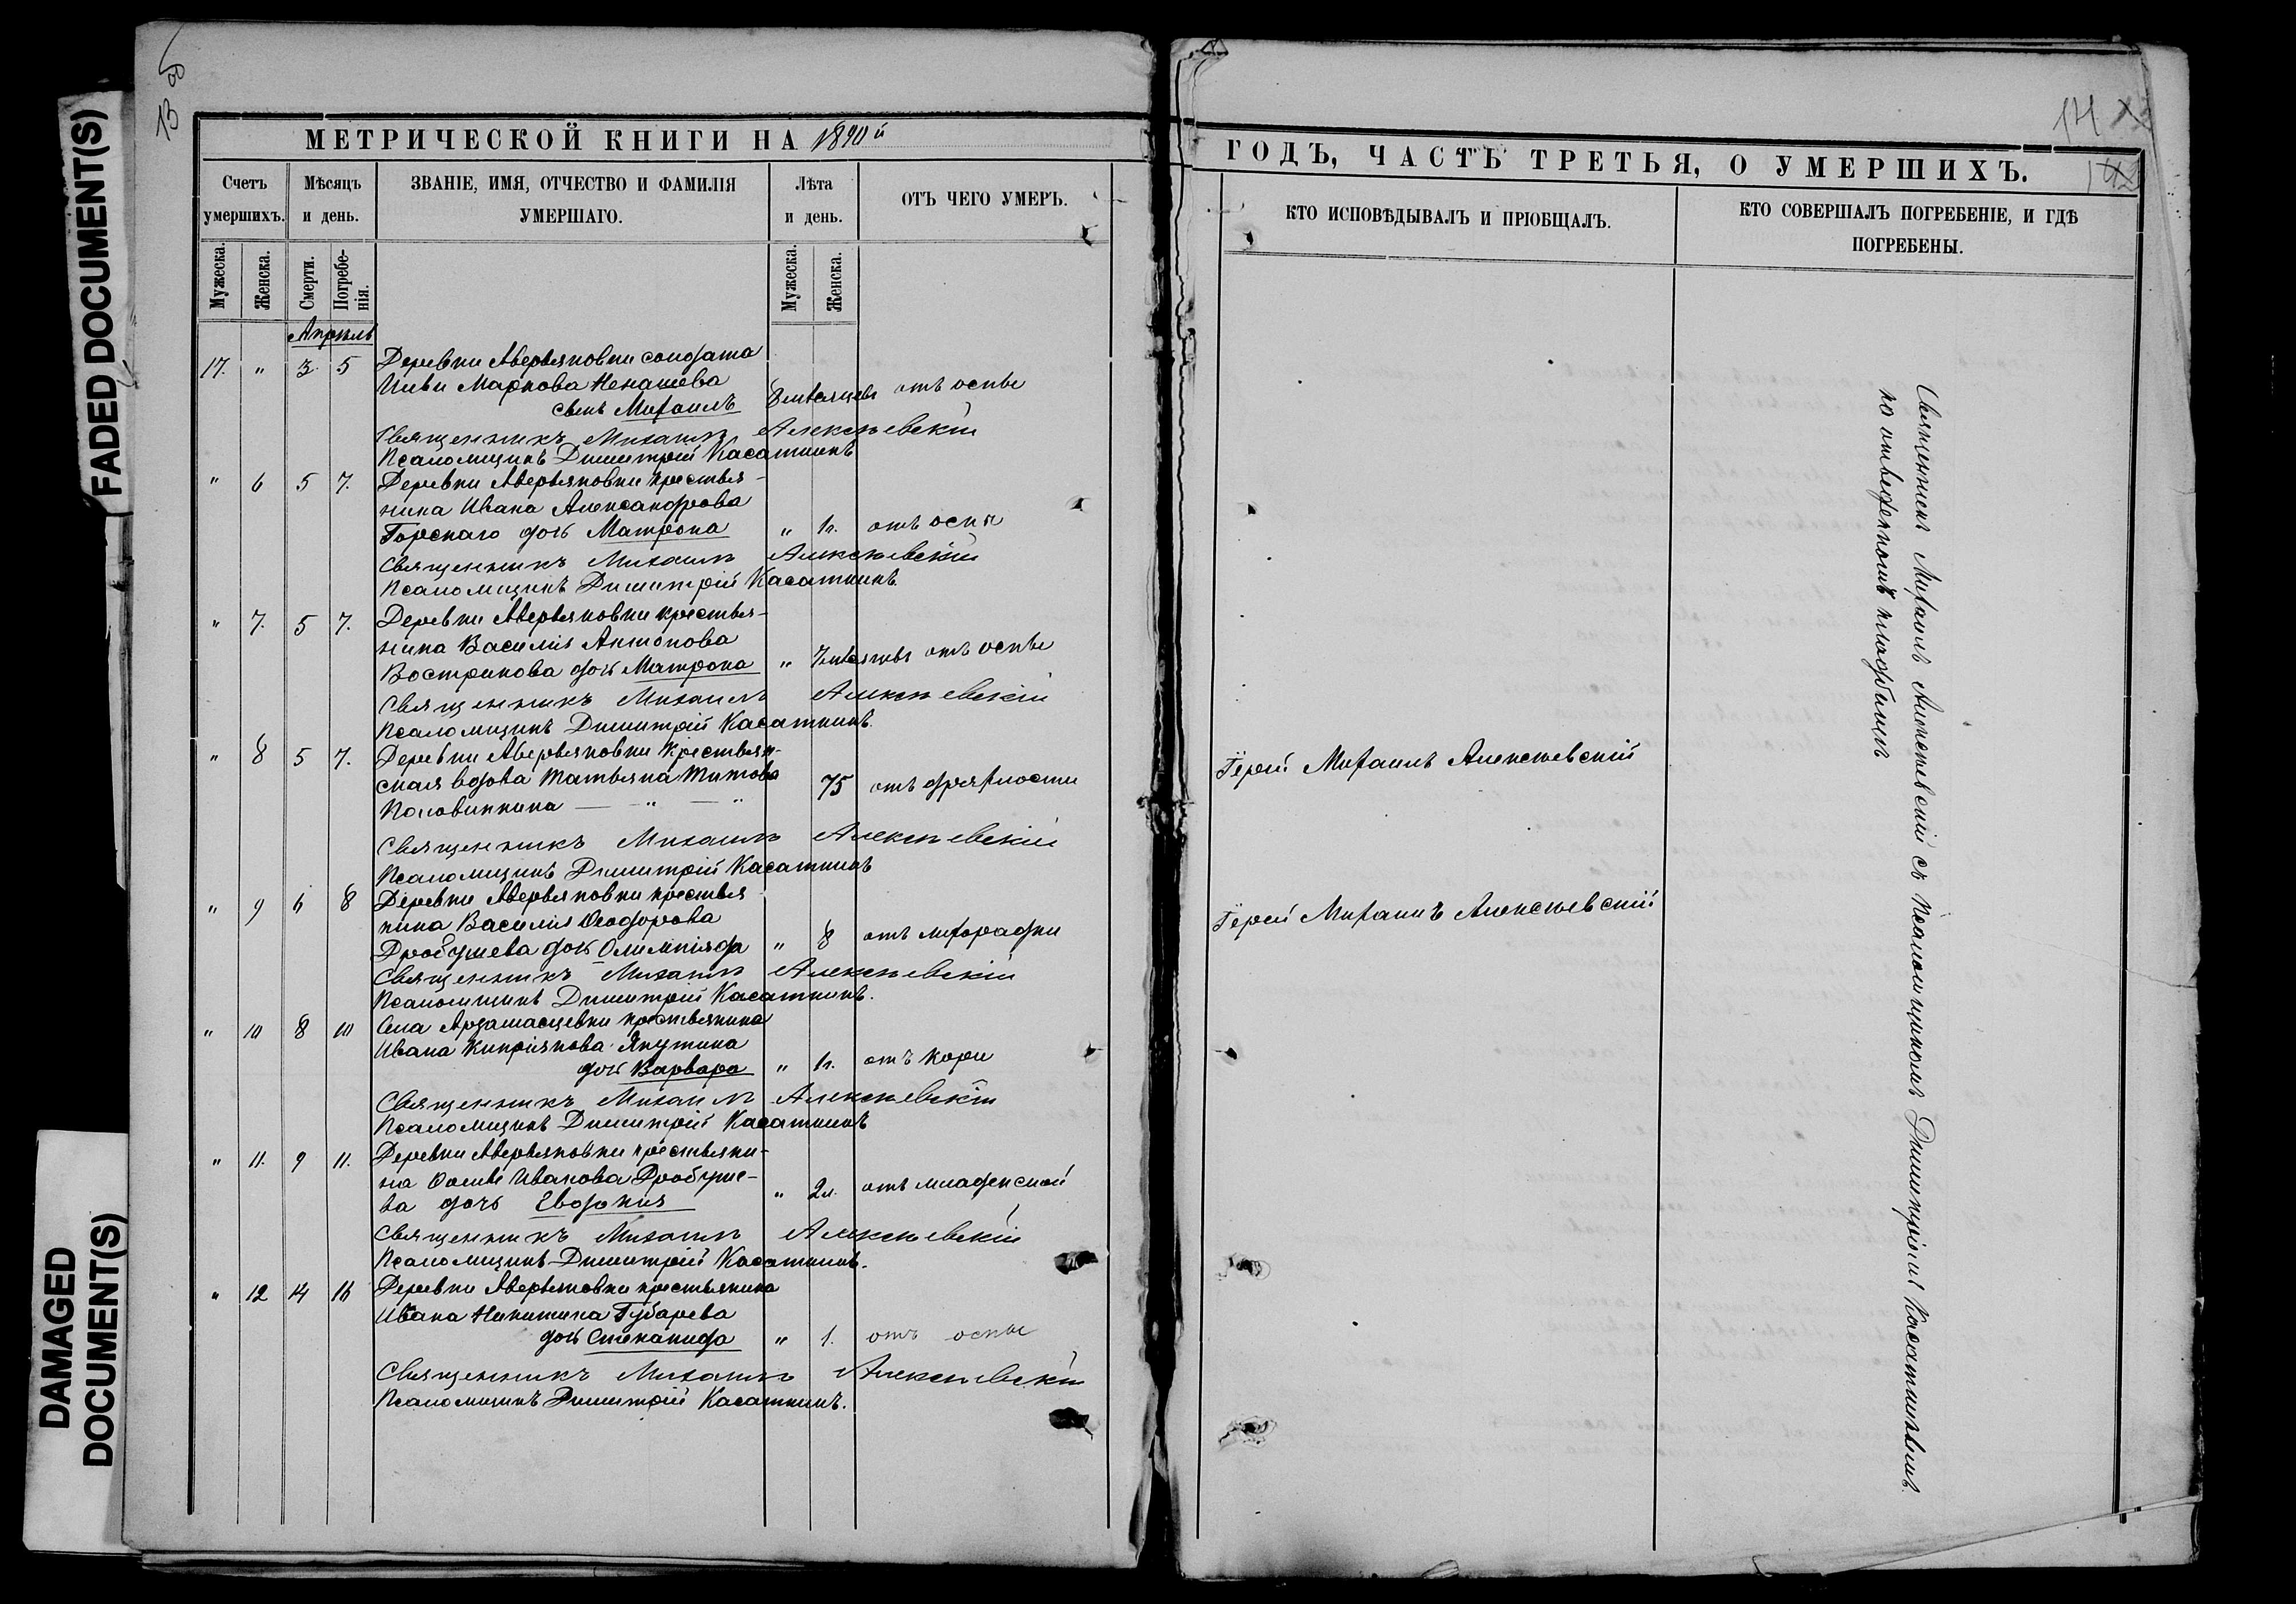 FADED DOCUMENT(S)
DAMAGED
DOCUMENT(S)
13 об
МЕТРИЧЕСКОЙ КНИГИ НА 1890й
Счетъ умершихъ.
Мѣсяцъ и день.
ЗВАНІЕ, ИМЯ, ОТЧЕСТВО И ФАМИЛІЯ УМЕРШАГО.
Лѣта и день.
ОТЪ ЧЕГО УМЕРЪ.
Мужеска.
Женска.
Смерти.
Погребенія.
Мужеска.
Женска.
Апрѣль
17. " 3 5 Деревни Аверьяновки солдата
Маркова Ненашева
сынъ Михаилъ 8 мѣсяцевъ отъ оспы
Священникъ Михаилъ Алексѣевскій
Псаломщикъ Димитрій Касаткинъ
" 6 5 7. Деревни Аверьяновки крестья-
нина Ивана Александрова
Горскаго дочь Матрона " 1г. отъ оспы
Священникъ Михаилъ Алексѣевскій
Псаломщикъ Димитрій Касаткинъ
" 7. 5 7. Деревни Аверьяновки крестья-
нина Василія Антонова
Вострикова дочь Матрона " 7 мѣсяцевъ отъ оспы
Священникъ Михаилъ Алексѣевскій
Псаломщикъ Димитрій Касаткинъ.
" 8 5 7. Деревни Аверьяновки крестьян-
ская вдова Татьяна Титова
Половинкина — " — " 75 отъ дряхлости
Священникъ Михаилъ Алексѣевскій
Псаломщикъ Димитрій Касаткинъ
" 9 6 8 Деревни Аверьяновки крестья
нина Василія Ѳеодорова
Дробушева дочь Олимпіяда " 8 отъ лихорадки
Священникъ Михаилъ Алексѣевскій
Псаломщикъ Димитрій Касаткинъ.
" 10 8 10 Села Арзамасцевки крестьянина
Ивана Кипріянова Якутина
дочь Варвара " 1г. отъ кори
Священникъ Михаилъ Алексѣевскій
Псаломщикъ Димитрій Касаткинъ
" 11. 9 11. Деревни Аверьяновки крестьяни-
на Ивановa Дробуше-
ва дочь Евдокия " 2л. отъ младенской
Священникъ Михаилъ Алексѣевскій
Псаломщикъ Димитрій Касаткинъ.
" 12 14 16 Деревни Аверьяновки крестьянина
Ивана Никитина Губарева
дочь Степанида " 1. отъ оспы
Священникъ Михаилъ Алексѣевскій
Псаломщикъ Димитрій Касаткинъ.
14
ГОДЪ, ЧАСТЬ ТРЕТЬЯ, О УМЕРШИХЪ.
КТО ИСПОВѢДЫВАЛЪ И ПРІОБЩАЛЪ.
КТО СОВЕРШАЛЪ ПОГРЕБЕНІЕ, И ГДѢ ПОГРЕБЕНЫ.
Іерей Михаилъ Алексѣевскій
Іерей Михаилъ Алексѣевскій
Священникъ Михаилъ Алексѣевскій съ Псаломщикомъ Димитріемъ Касаткинымъ
на отведенномъ кладбищѣ